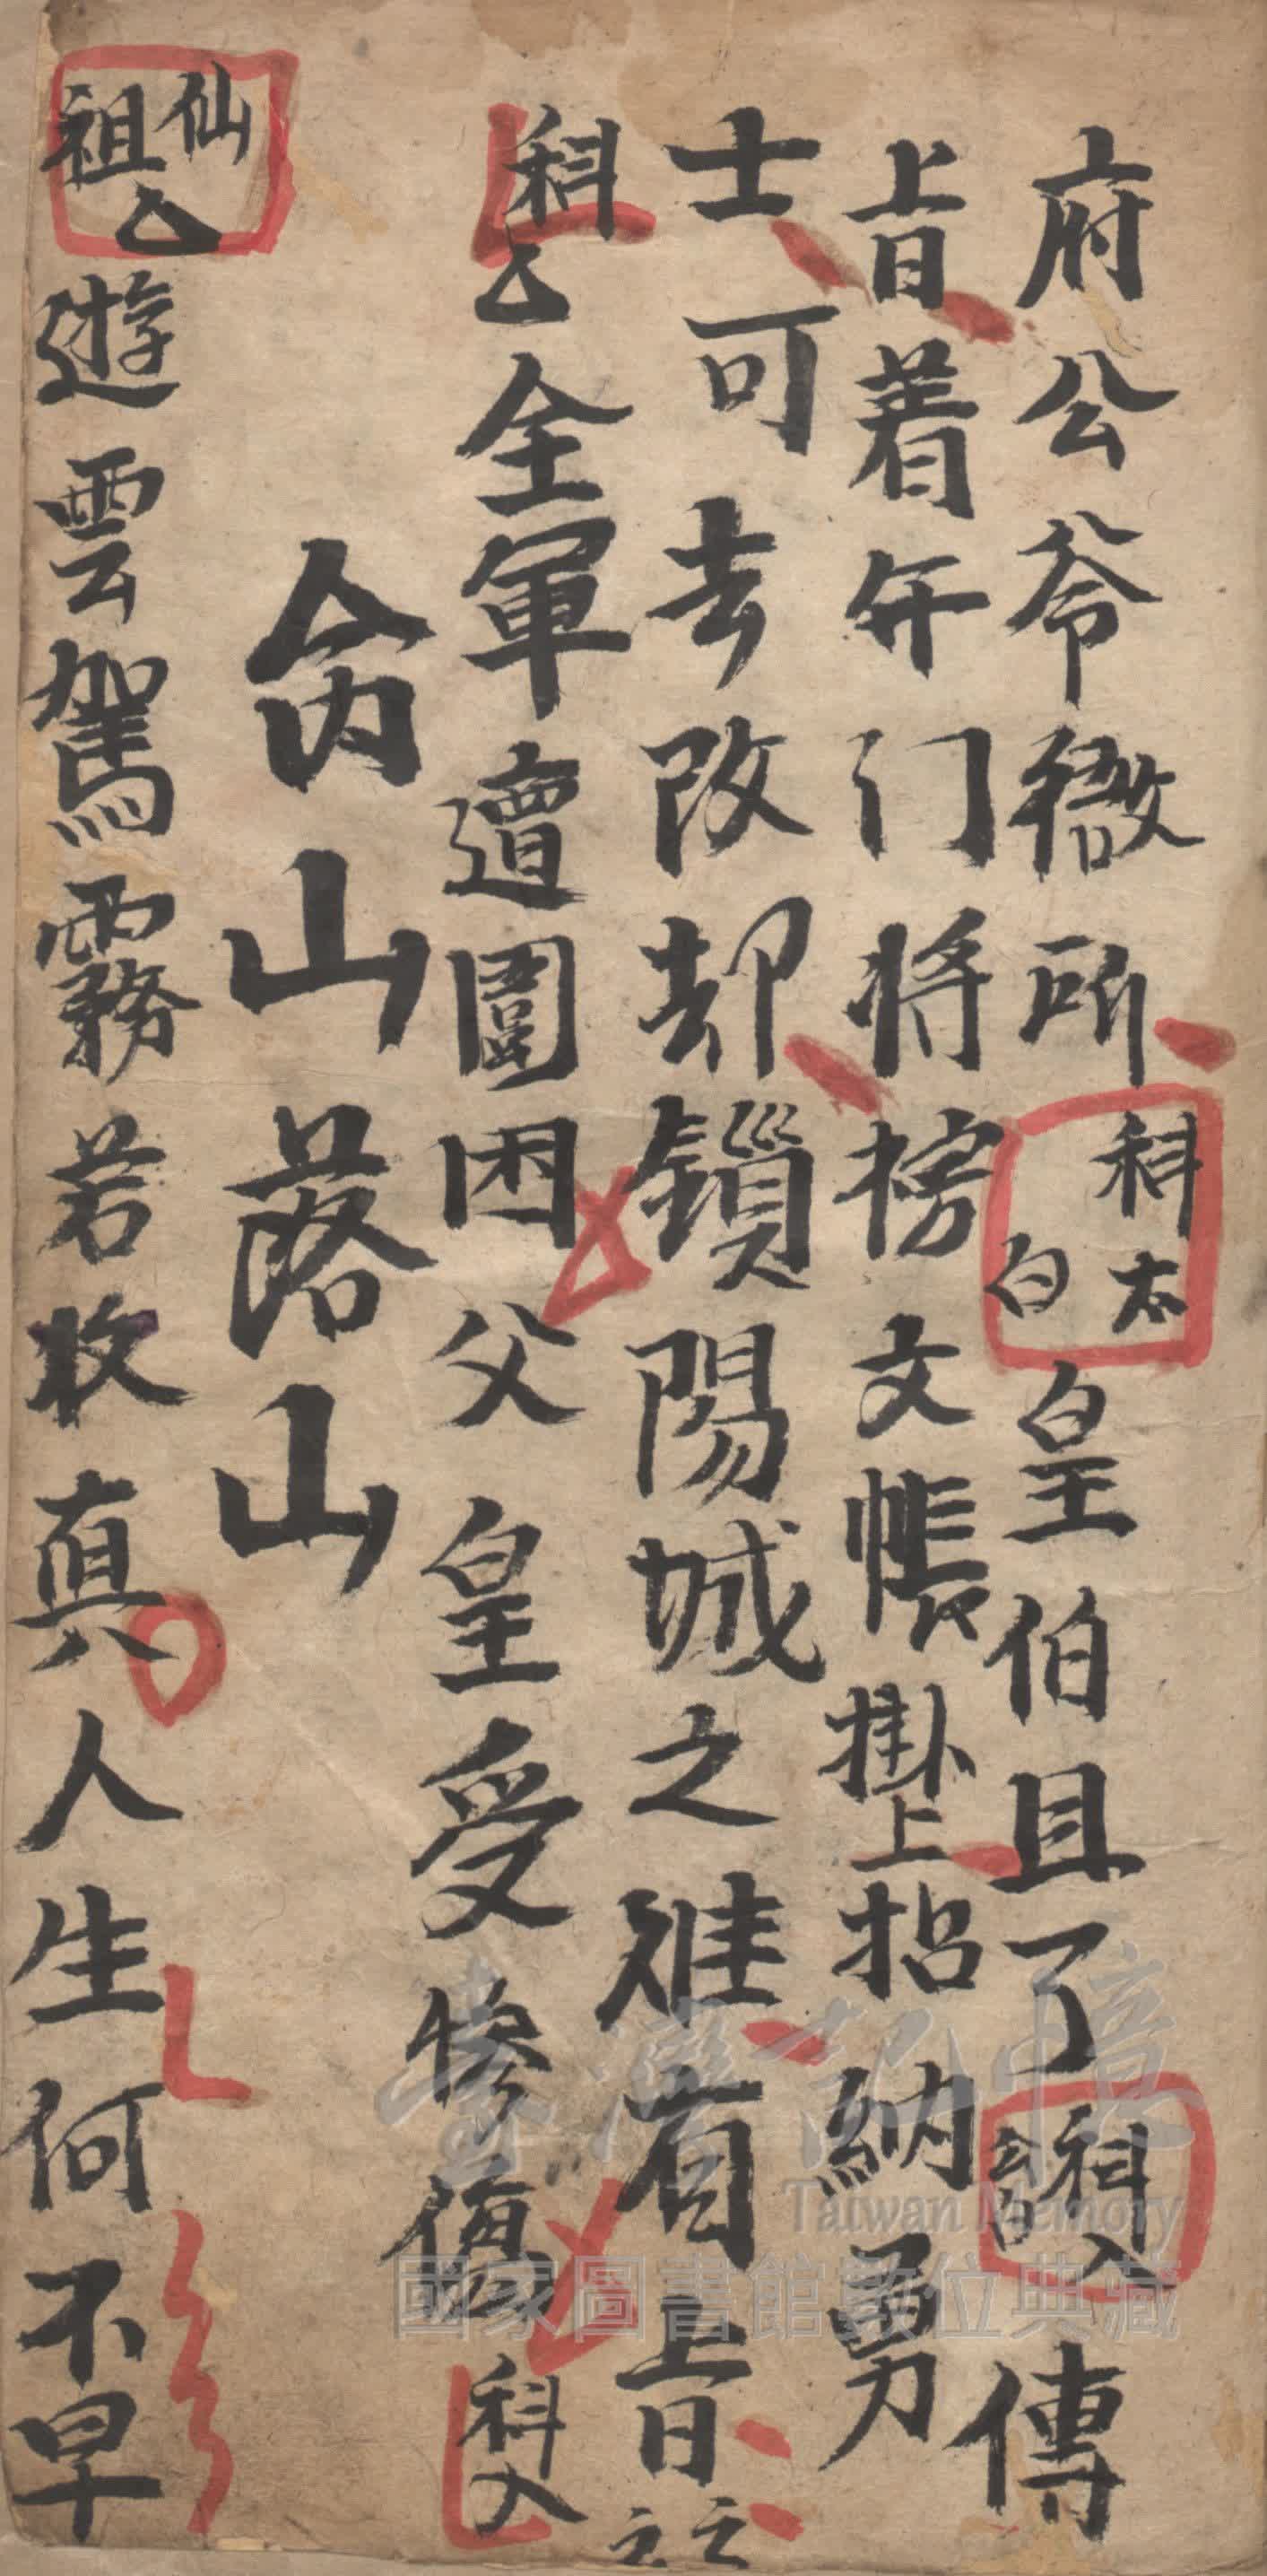 府公爷衙所科太白皇伯且了科入云白傳
上旨着午门将榜文帳掛上招納勇
士可去改却鎖陽城之难有上旨云云
科△全軍遭圍困父皇受慘傷科入
肏山落山
仙祖△遊雲駕霧若收真人生何不早
臺灣記憶
Taiwan Memory
國家圖書館數位典藏